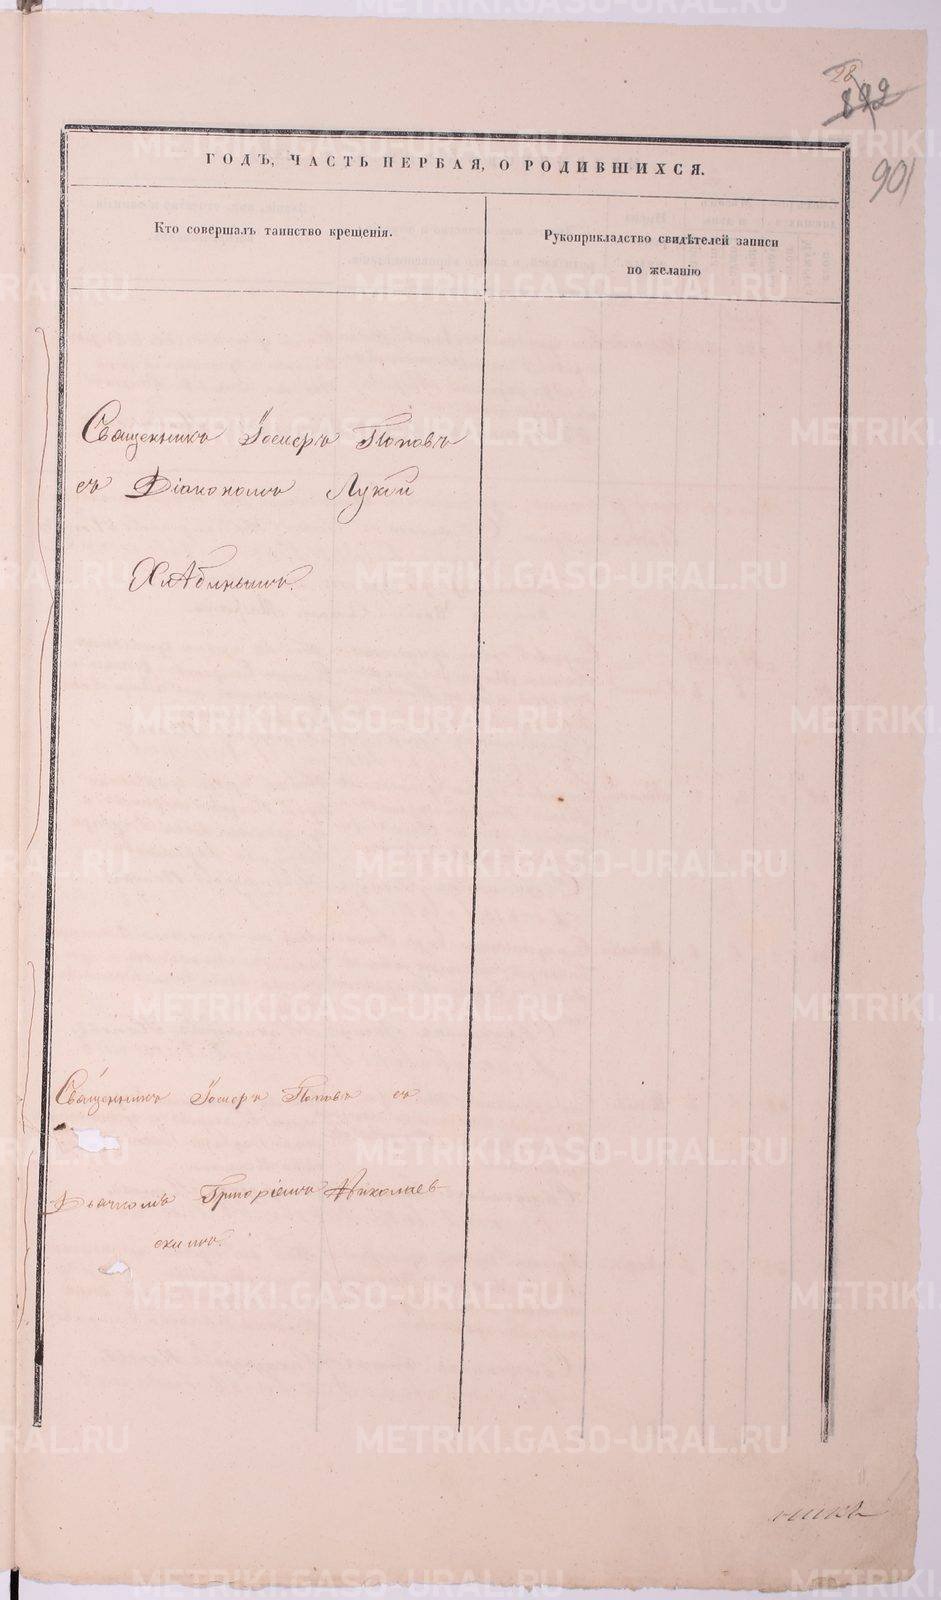 28
892
901
ГОДЪ, ЧАСТЬ ПЕРВАЯ, О РОДИВШИХСЯ.
Кто совершалъ таинство крещенія.
Рукоприкладство свидѣтелей записи
по желанію
Священникъ Іосифъ Поповъ
съ Діакономъ Лукой
Хлѣбинымъ.
Священникъ Іосифъ Поповъ съ
Дьячкомъ Григоріемъ Николаев-
скимъ.
METRIKI.GASO-URAL.RU